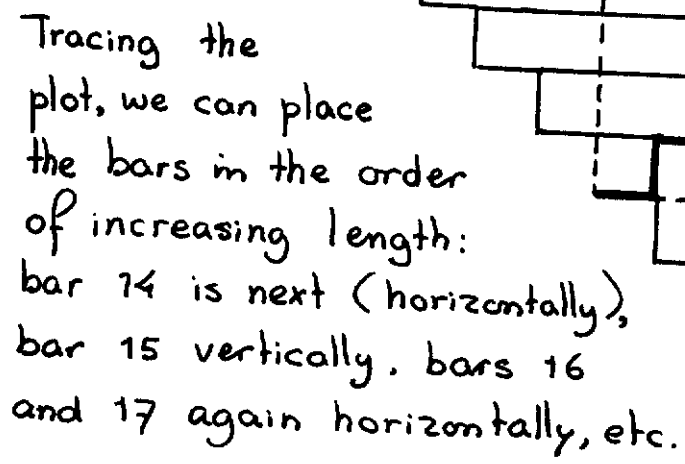 Tracing the
plot, we can place
the bars in the order
of increasing length:
bar 14 is next (horizontally),
bar 15 vertically, bars 16
and 17 again horizontally, etc.